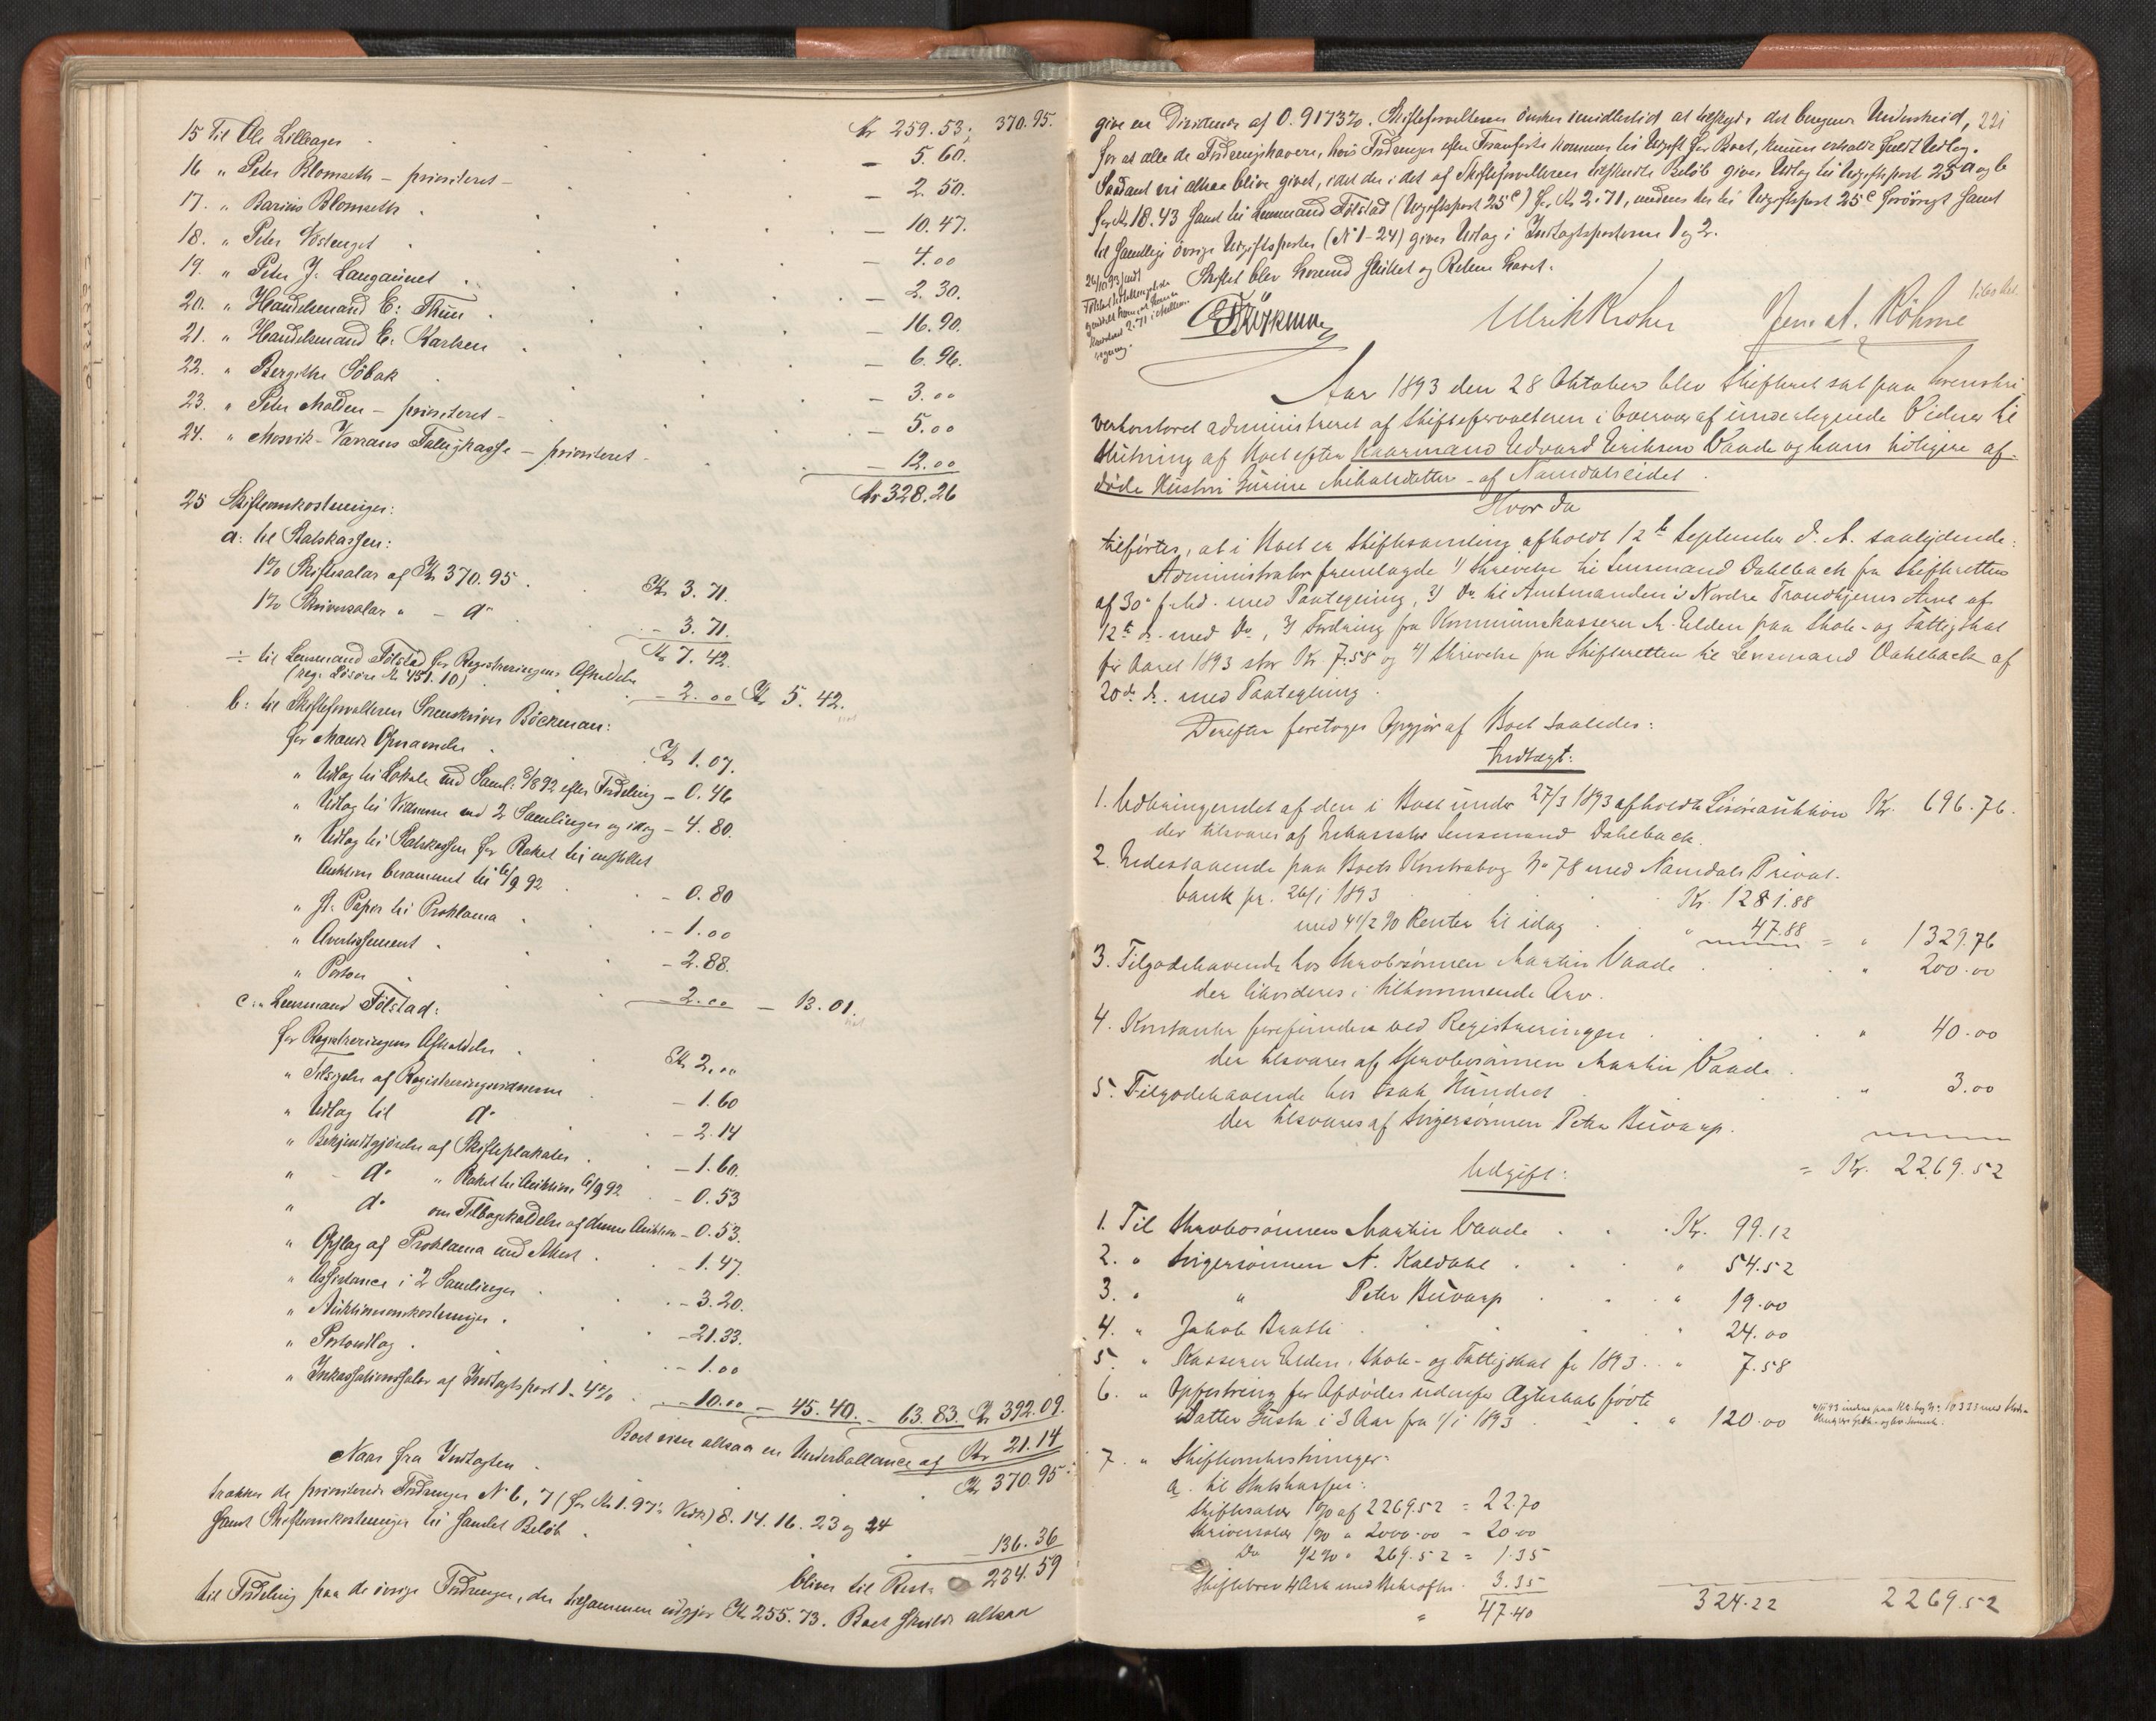 Kr 259.53; 370.95.
15 Til Ole Lilleager . — 5.60.
16 „ Peter Blomseth – prioriteret – — 2.50.
17. „ Barius Blomseth . — 10.47.
18. „ Peter . — 4.00
19. „ Peter J. Langaunet . — 2.30.
20. „ Handelsmand E: Thun . — 16.90.
21. „ Handelsmand E. Karlsen . — 6.96.
22. „ Bergithe Söbak — 3.00
23. „ Peter Molden – prioriteret – — 5.00
24. „ Mosvik-Varranes Fattigkasse – prioriteret – — 12.00
Kr 328.26
25 Skifteomkostninger:
a: til Statskassen:
1% Skiftesalar af Kr 370.95 . Kr 3.71.
1% Skriversalar „ – do – 3.71.
Kr 7.42.
÷ til Lensmand Fölstad for Registreringens Afholdelse
(reg. Lösöre Kr 451.10) – 2.00 Kr 5.42.
b: til Skifteforvalteren Sorenskriver Böckman:
for Mands Opnævnelse . Kr 1.07.
„ Udlag til Lokale ved Saml: 9/8 92 efter Fordeling – 0.46
„ Udlag til Vidnerne ved 2 Samlinger og idag – 4.80.
„ Udlag til Statskassen for Plakat til indstillet
Auktion berammet til 6/9 92 . – 0.80
„ st. Papir til Proklama . – 1.00
„ Avertissement . – 2.88.
„ Portoer . – 2.00 – 13.01.
c: „ Lensmand Fölstad:
for Registreringens Afholdelse . Kr 2.00
„ Tilsigelse af Registreringsvidnerne – 1.60
„ Udlag til do – 2.14
„ Bekjendtgjörelse af Skifteplakater . – 1.60.
„ – do „ Plakat til Auktion 6/9 92 . – 0.53
„ do om Tilbagekaldelse af denne Auktion – 0.53.
„ Opslag af Proklama med Attest . – 1.47.
„ Assistance i 2 Samlinger . – 3.20.
„ Auktionsomkostninger . – 21.33.
„ Portoudlag . – 1.00
„ Inkassationssalar af Indtægtspost 1. 4% . – 10.00 – 45.40. – 63.83. Kr 392.09.
Boet viser altsaa en Underballance af Kr 21.14
Naar fra Indtægten . Kr 370.95.
trækkes de prioriterede Fordringer No 6, 7 (for Kr 1.97's Vedk) 8. 14. 16. 23 og 24
samt Skifteomkostninger til samlet Beløb . – 136.36
bliver til Rest Kr 234.59
til Fordeling paa de övrige Fordringer, der tilsammen udgjør Kr 255.73. Boet skulde altsaa
221
give en Dividende af 0.9173%. Skifteforvalteren önsker imidlertid at tilskyde det beløbne Underskud,
for at alle de Fordringshavere, hvis Fordringer efter Foranførte kommer til Udgift for Boet, kunne erholde fuldt Udlæg.
Saadant vil altsaa blive givet, idet der i det af Skifteforvalteren tilskudte Beløb gives Udlæg til Udgiftspost 25 a og b
for Kr 18.43 samt til Lensmand Fölstad (Udgiftspost 25 c) for Kr 2.71, medens der til Udgiftspost 25 c forövrigt samt
til samtlige övrige Udgiftsposter (No 1–24) gives Udlæg i Indtægtsposterne 1 og 2.
Skiftet blev hermed sluttet og Retten hævet.
Böckman Ulrik Kroher Jens A. Böhme
Aar 1893 den 28 Oktober blev Skifteret sat paa Sorenskri
verkontoret administreret af Skifteforvalteren i Overvær af undertegnede Vidner til
Slutning af Boet efter Kaarmand Edvard Eriksen Vaade og hans tidligere af-
døde Hustru Gurine Mikalsdatter – af Namdalseidet .
Hvorda
tilførtes, at i Boet er Skiftesamling afholdt 12te September d. A. saalydende:
Administrator fremlagde 1) Skrivelse til Lensmand Dahlback fra Skifteretten
af 30te f. Md. med Paategning, 2) Do til Amtmanden i Nordre Trondhjems Amt af
12te d. med Do, 3) Fordring fra Kommunekasserer M. Elden paa Skole- og Fattigskat
for Aaret 1893 stor Kr 7.58 og 4) Skrivelse fra Skifteretten til Lensmand Dahlback af
20de d. med Paategning .
Derefter foretoges Opgjør af Boet saaledes:
Indtægt:
1. Udbringendet af den i Boet under 27/3 1893 afholdte Løsøreauktion Kr. 696.76.
der tilsvares af Inkassator Lensmand Dahlback.
2. Indestaaende paa Boets Kontrabog No 78 med Namdals Privat-
bank pr. 26/1 1893 Kr. 1281.88
med 4 1/2 % Renter til idag . „ 47.88 = „ 1329.76
3. Tilgodehavende hos Stervbosønnen Martin Vaade . „ 200.00
der likvideres i tilkommende Arv.
4. Kontanter forefunden ved Registreringen . „ 40.00
der tilsvares af Stervbosønnen Martin Vaade .
5. Tilgodehavende hos Isak . „ 3.00
der tilsvares af Svigersønnen Peter Buvarp.
= Kr. 2269.52
Udgift:
1. Til Stervbosønnen Martin Vaade . . Kr. 99.12
2. „ Svigersønnen A. Kaldahl . „ 54.52
3. „ „ Peter Buvarp . „ 19.00
4. „ Jakob Bratli . „ 24.00
5. „ Kasserer Elden, Skole- og Fattigskat for 1893 . „ 7.58
6. „ Opfostring for Afdødes udenfor Ægteskab fødte
Datter Gusta i 3 Aar fra 1/1 1893 . „ 120.00
7. „ Skifteomkostninger:
a. til Statskassen:
Skiftesalær 1% af 2269.52 = 22.70
Skriversalær 1% „ 2000.00 = 20.00
Do 1/2 % „ 269.52 = 1.35
Skiftebrev 4 Ark med Bekræftn. 3.35
„ 47.40 324.22 2269.52